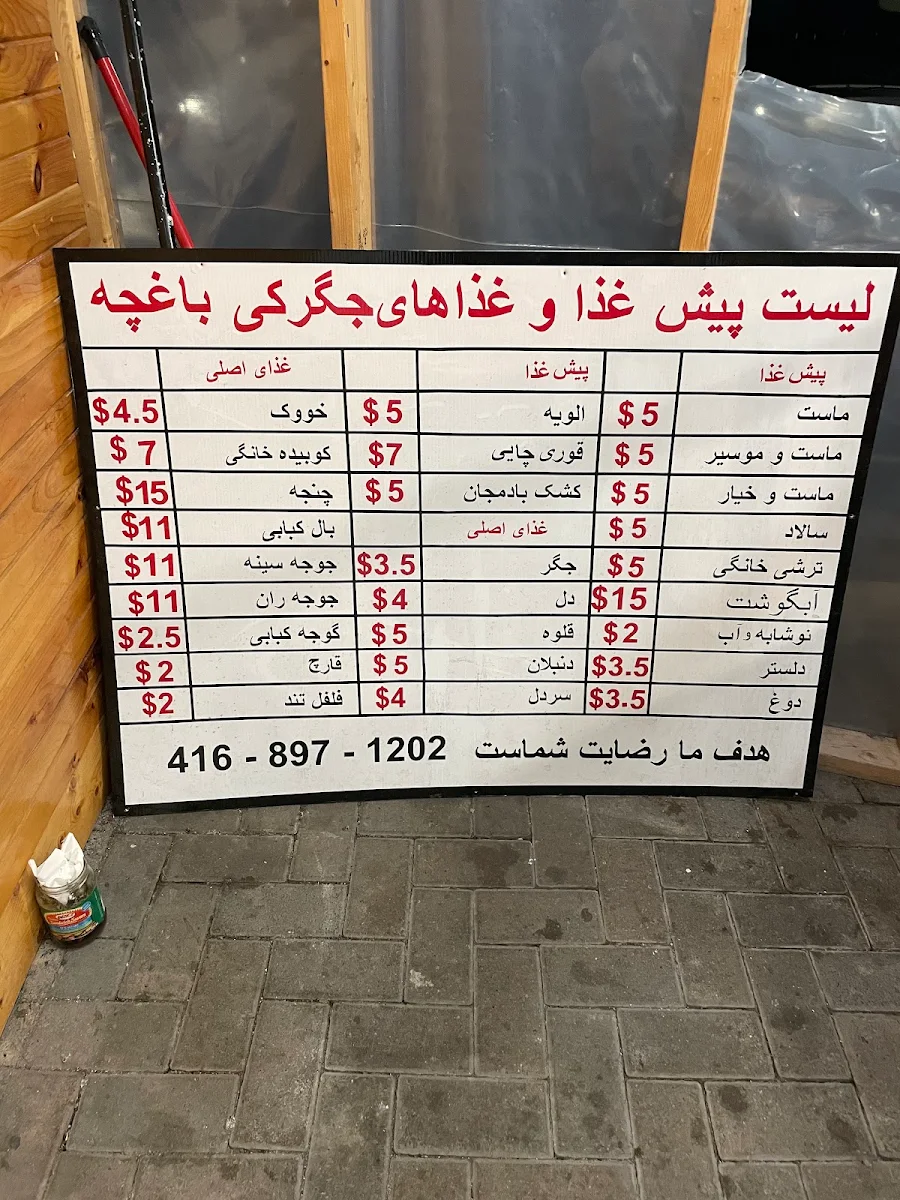 لیست پیش غذا و غذاهای جگرکی باغچه
پیش غذا پیش غذا غذای اصلی
ماست $5 الویه $5 خووک $4.5
ماست و موسیر $5 قوری چایی $7 کوبیده خانگی $7
ماست و خیار $5 کشک بادمجان $5 چنجه $15
سالاد $5 غذای اصلی بال کبابی $11
ترشی خانگی $5 جگر $3.5 جوجه سینه $11
آبگوشت $15 دل $4 جوجه ران $11
نوشابه و آب $2 قلوه $5 گوجه کبابی $2.5
دلستر $3.5 دنبلان $5 قارچ $2
دوغ $3.5 سردل $4 فلفل تند $2
هدف ما رضایت شماست 416 - 897 - 1202